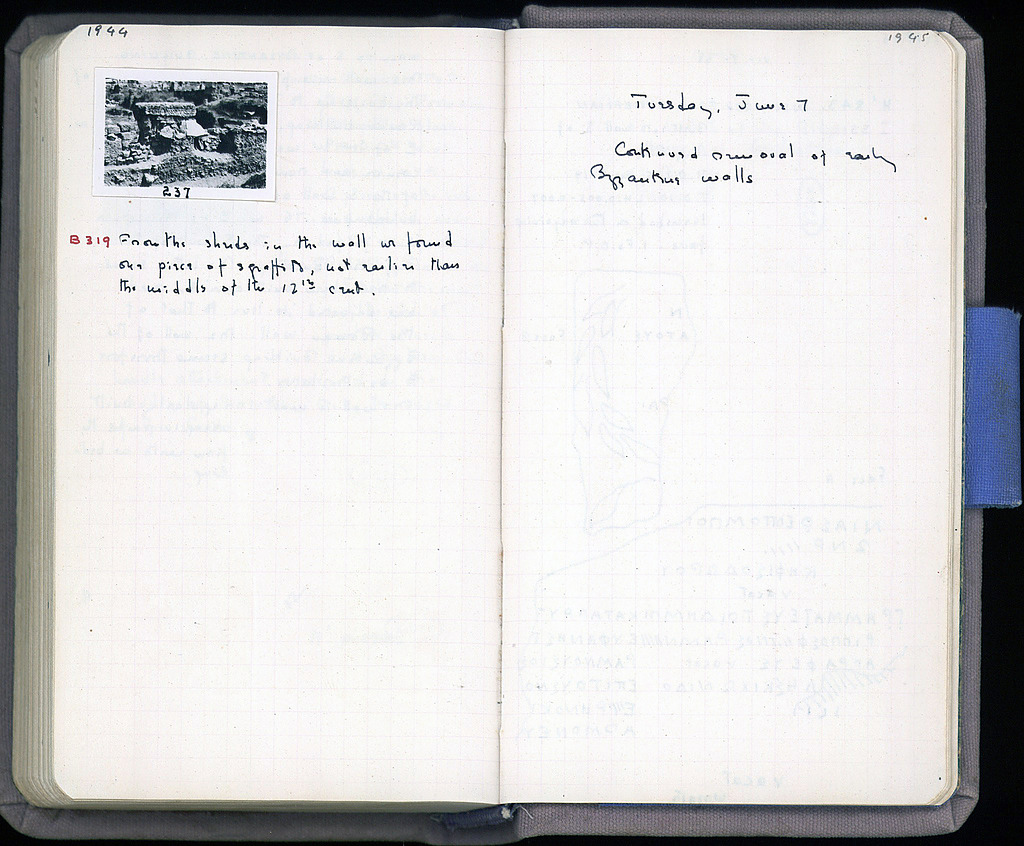 1944
237
B 319 From the sherds in the wall we found
one piece of sgraffito, not earlier than
the middle of the 12th cent.
1945
Tuesday, June 7
Continued removal of early
Byzantine walls